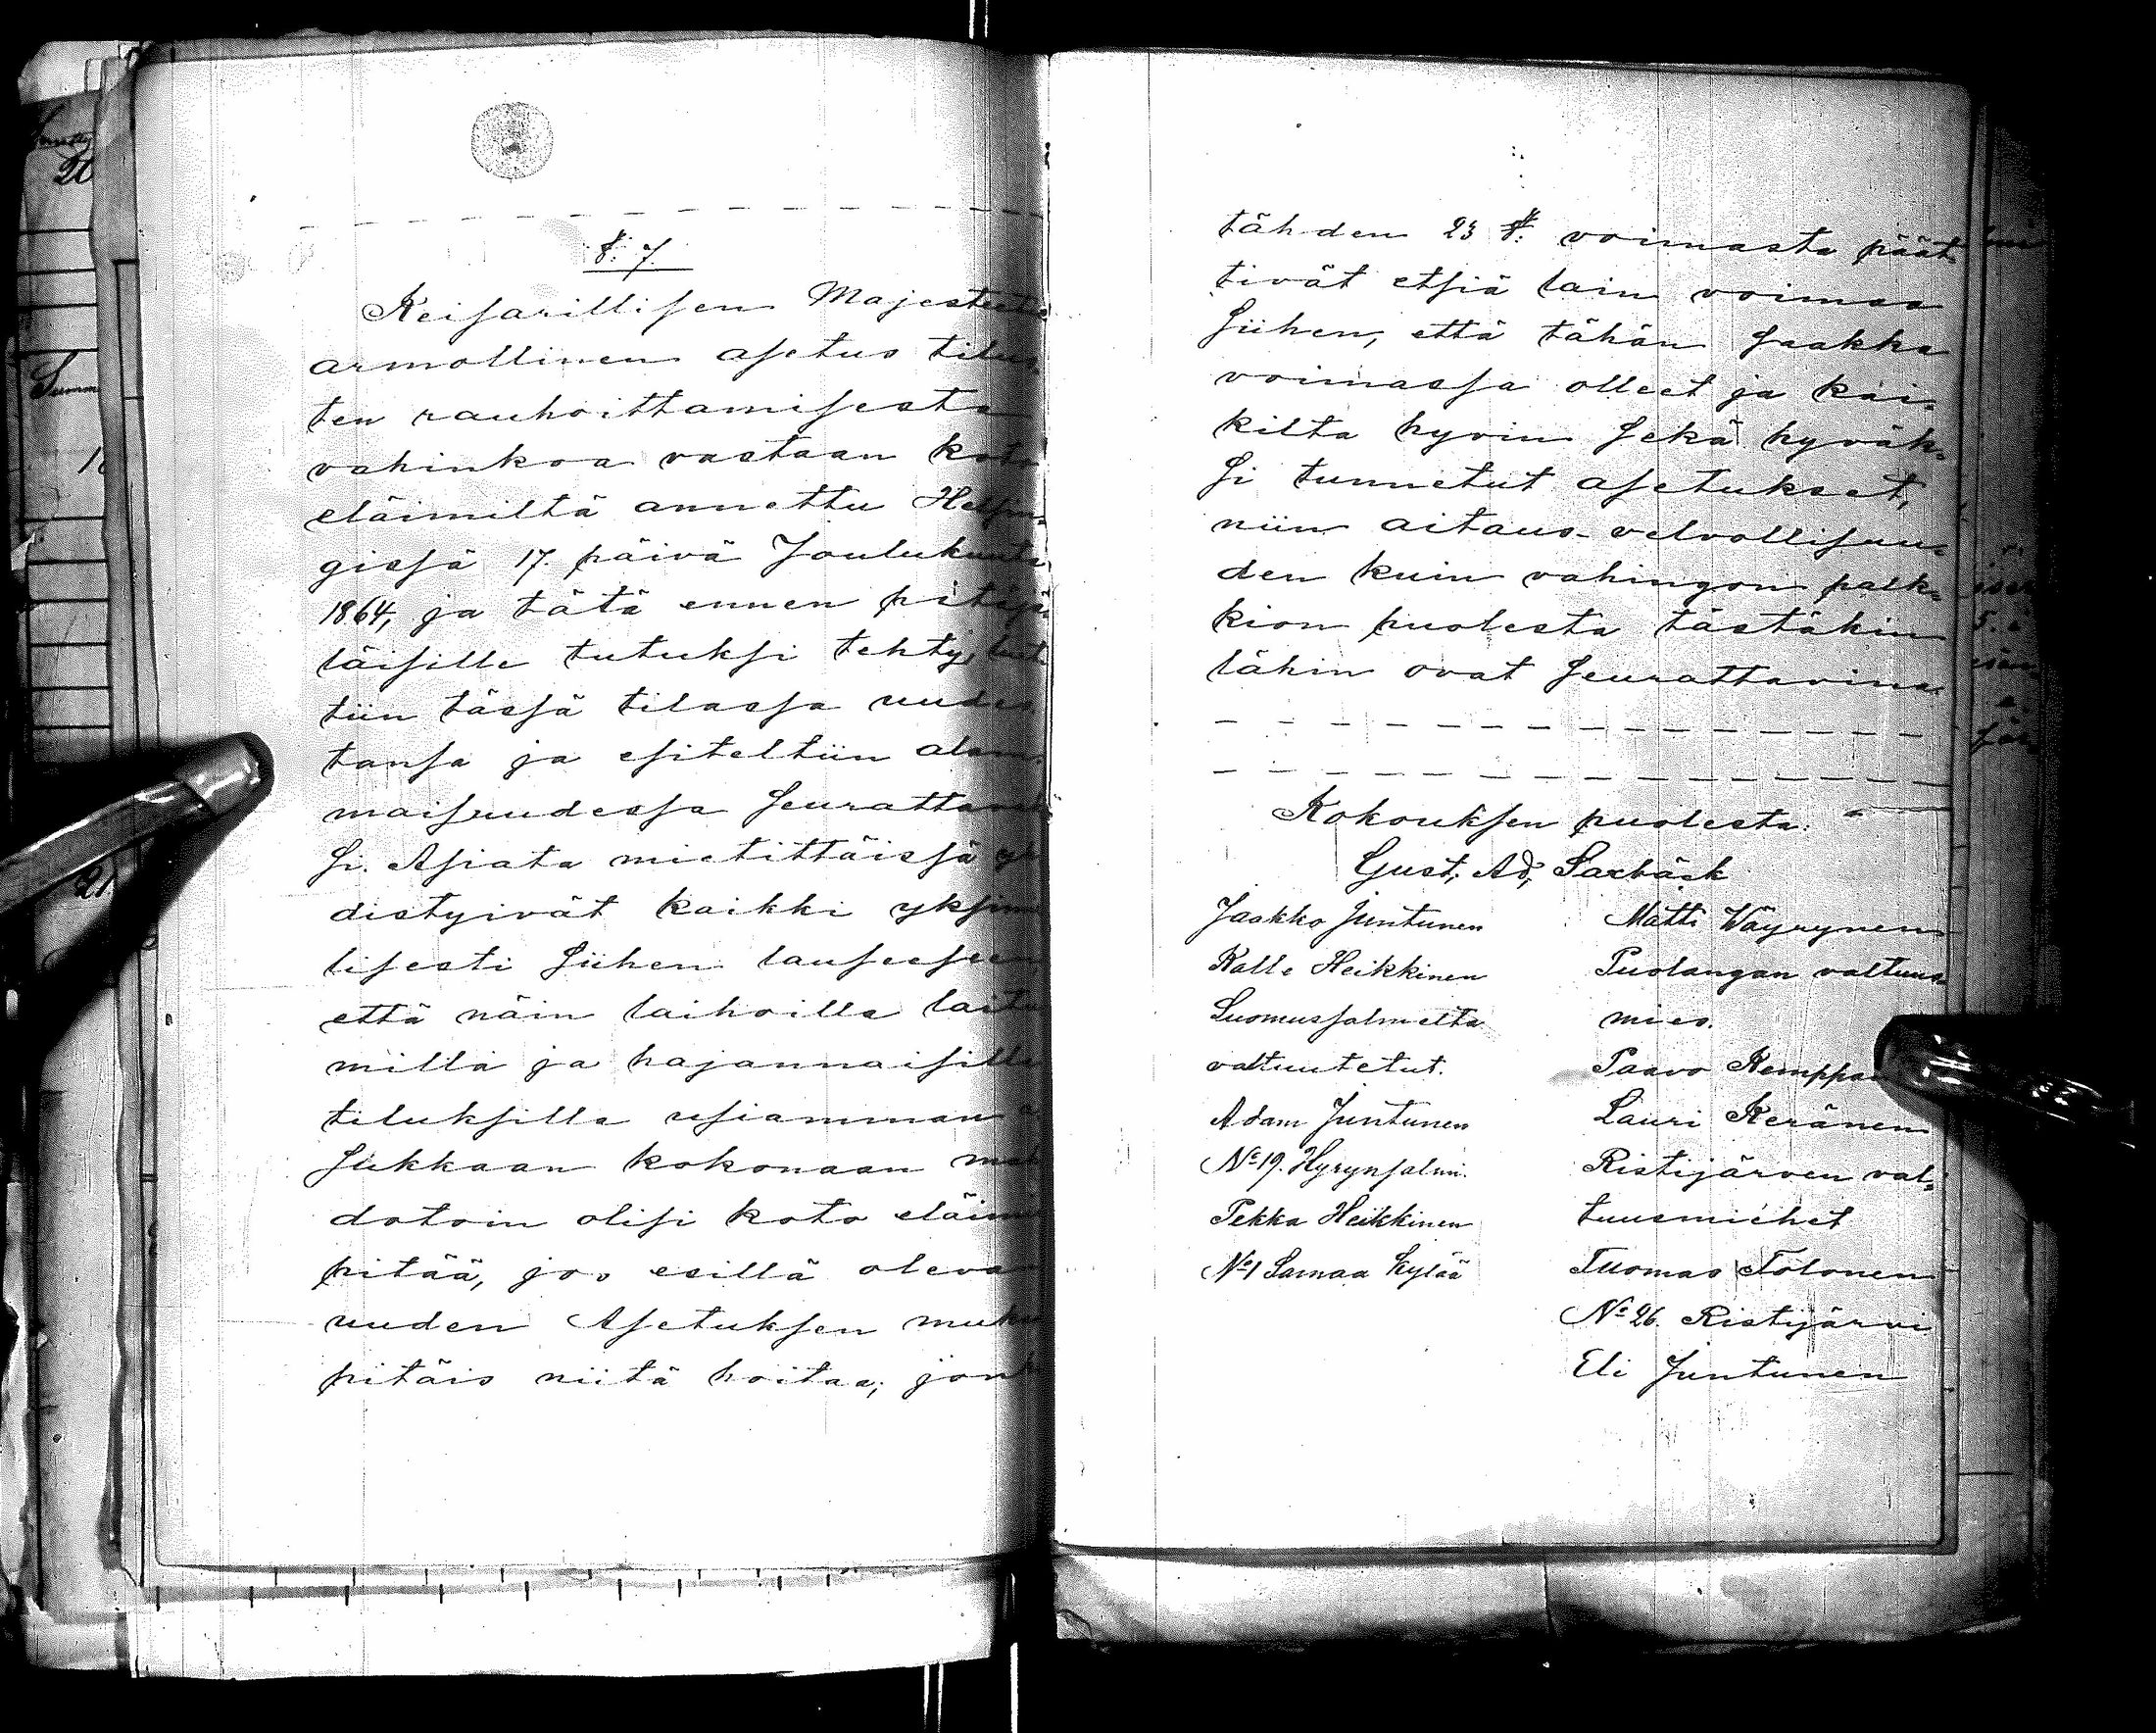 §. 7.
Keisarillisen Majesteetin
armollinen asetus tilus-
ten rauhoittamisesta
vahinkoa vastaan koto
eläimiltä annettu Helsin-
gissä 17. päivä Joulukuuta
1864, ja tätä ennen pitäjä-
läisille tutuksi tehty, luet-
tiin tässä tilassa uudes-
tansa ja esiteltiin alam-
maisuudessa seurattavak-
si. Asiata mietittäissä yh-
distyivät kaikki yksimie-
lisesti siihen lauseeseen
että näin laihoilla laitu-
milla ja hajannaisilla
tiluksilla usiamman a-
sukkaan kokonaan mah-
dotoin olisi koto eläimiä
pitää, jos esillä olevan
uuden Asetuksen mukaan
pitäis niitä hoitaa; jonka
tähden 23 §: voimasta päät-
tivät etsiä lain voimaa
siihen, että tähän saakka
voimassa olleet ja kai-
kilta hyvin sekä hyväk-
si tunnetut asetukset,
niin aitaus-velvollisuu-
den kuin vahingon palk-
kion puolesta tästäkin
lähin ovat seurattavina.
Kokouksen puolesta:
Gust. Ad. Saxbäck
Jaakko Juntunen
Kalle Heikkinen
Suomussalmelta
valtuutetut.
Adam Juntunen
No 19. Hyrynsalmi.
Pekka Heikkinen
No 1 Samaa kylää
Matti Wäyrynen
Puolangan valtuus-
mies.
Paavo
Lauri Keränen
Ristijärven val-
tuusmiehet
Tuomas Tolonen
No 26. Ristijärvi
Eli Juntunen